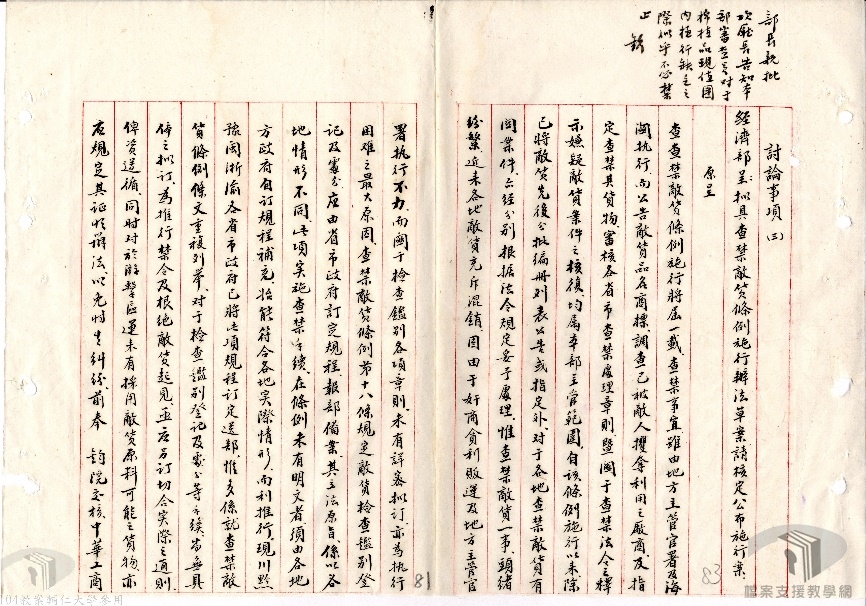 部長批
次
部審查
討論事項(三)
經濟部呈:擬具查禁敵貨條例施行辦法草案請核定公布施行案
原呈
查查禁敵貨條例施行將屆一載、查禁事宜雖由地方主管官署及海
關執行、而公告敵貨品名商標、調查已被敵人攫奪利用之廠商、及指
定查禁其貨物、審核各省市查禁處理章則、暨關于查禁法令之釋
示、嫌疑敵貨案件之核復、均屬本部主管範圍、自該條例施行以來、除
已將敵貨先後分批編冊列表公告或指定外、對于各地查禁敵貨有
關案件、亦經分別根據法令規定妥予處理、惟查禁敵貨一事、頭緒
紛繁、近來各地敵貨充斥混銷、固由于奸商貪利販運及地方主管官
83
署執行不力、而關于檢查鑑別各項章則、未有詳密擬訂、亦為執行
困难之最大原因、查禁敵貨條例第十八條規定敵貨檢查鑑別登
記及處分、应由省市政府訂定規程報部備案、其立法原旨、係以各
地情形不同、此項实施查禁手續、在條例未有明文者、須由各地
方政府自訂規程補充、始能符合各地实際情形、而利推行、現川黔
豫閩浙渝各省市政府已將此項規程訂定送部、惟多係就查禁敵
貨條例條文重複列举、对于檢查鑑別登記及處分等手續、尚無具
体之擬訂、為推行禁令及根絕敵貨起見、亟应另訂切合实際之通則、
俾資遵循、同时对於游擊區運來有採用敵貨原料可能之貨物、亦
应規定其証明辦法、以免时生糾紛、前奉 鈞院交核中華工商
81
101教案輔仁大學參用
檔案支援教學網